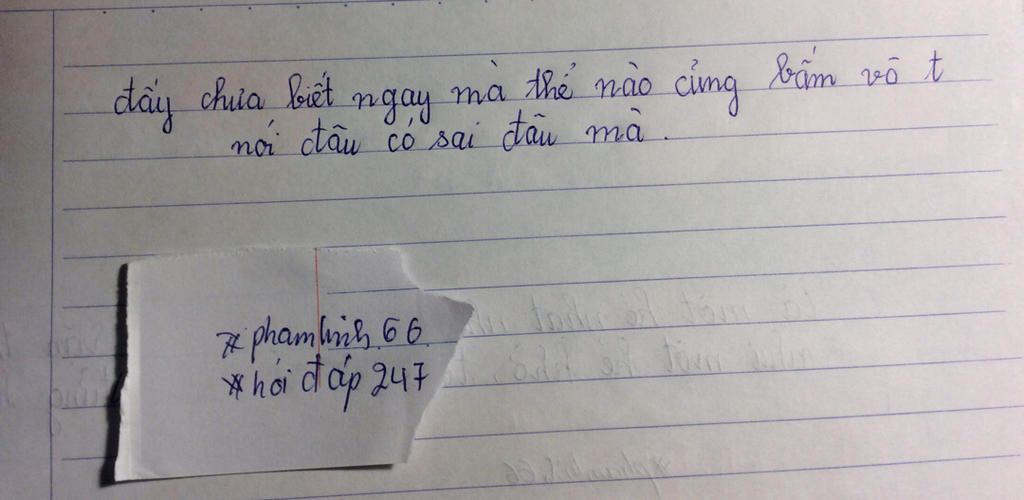 đấy chưa biết ngay mà thể nào cũng bấm vô t
nói đâu có sai đâu mà.
* phamlinh 66
* hỏi đáp 247